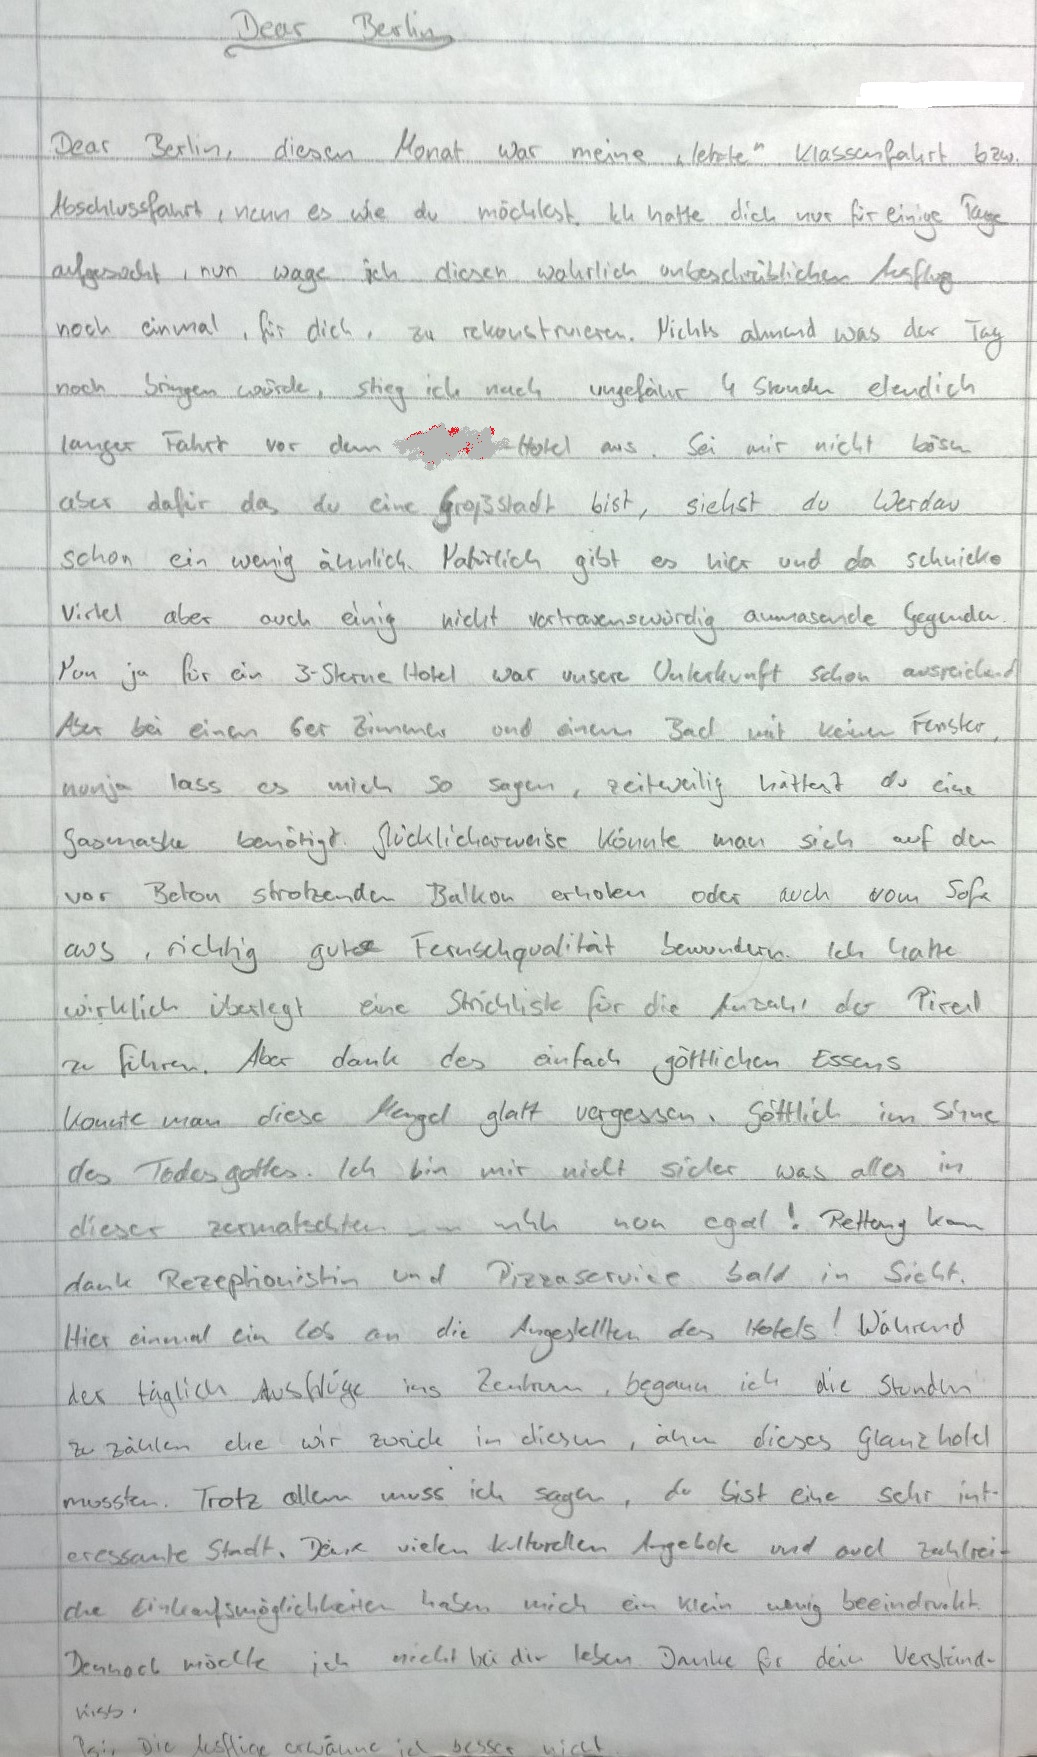 Dear Berlin
Dear Berlin, diesen Monat war meine „letzte" Klassenfahrt bzw.
Abschlussfahrt, nenn es wie du möchtest. Ich hatte dich nur für einige Tage
aufgesucht, nun wage ich diesen wahrlich unbeschreiblichen Ausflug
noch einmal, für dich, zu rekonstruieren. Nichts ahnend was der Tag
noch bringen würde, stieg ich nach ungefähr 4 Stunden elendich
langer Fahrt vor dem Hotel aus. Sei mir nicht bösen
aber dafür das du eine Großstadt bist, siehst du Werdau
schon ein wenig ähnlich. Natürlich gibt es hier und da schnieke
Viertel aber auch einig nicht vertrauenswürdig anmasende Gegenden.
Nun ja für ein 3-Sterne Hotel war unsere Unterkunft schon ausreichend
Aber bei einen 6er Zimmer und einem Bad mit keinen Fenster,
nunja lass es mich so sagen, zeitweilig hättest du eine
Gasmaske benötigt. Glücklicherweise könnte man sich auf den
vor Beton strotzenden Balkon erholen oder auch vom Sofa
aus, richtig gute Fernsehqualität bewundern. Ich hatte
wirklich überlegt eine Strichliste für die Anzahl der Pixel
zu führen. Aber dank des einfach göttlichen Essens
konnte man diese Mengel glatt vergessen. Göttlich im Sinne
des Todesgottes. Ich bin mir nicht sicher was alles in
dieser zermatschten ... nun egal! Rettung kam
dank Rezeptionistin und Pizzaservice bald in Sicht.
Hier einmal ein Lob an die Angestellten des Hotels! Während
der täglich Ausflüge ins Zentrum, begann ich die Stunden
zu zählen ehe wir zurück in diesen, ähm dieses Glanzhotel
mussten. Trotz allem muss ich sagen, du bist eine sehr int-
eressante Stadt. Deine vielen kulturellen Angebote und auch zahlrei-
che Einkaufsmöglichkeiten haben mich ein klein wenig beeindruckt.
Dennoch möchte ich nicht bei dir leben. Danke für dein Verständ-
niss.
Die Ausflüge erwänne ich besser nicht.